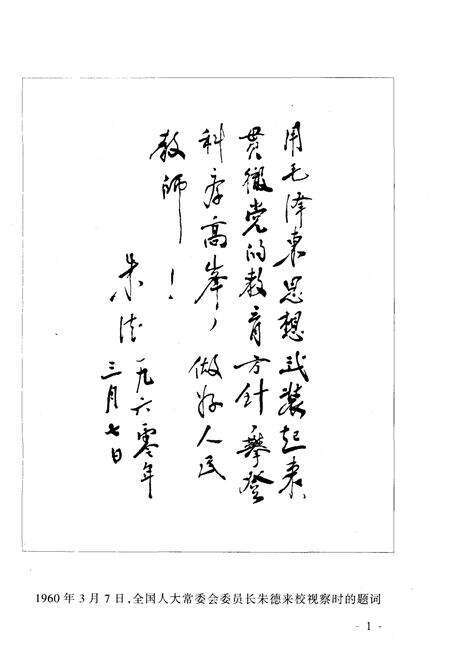 用毛泽东思想武装起来
贯彻党的教育方针攀登
科学高峯，做好人民
教师！
朱德
一九六零年
三月七日
1960年3月7日，全国人大常委会委员长朱德来校视察时的题词
- 1 -